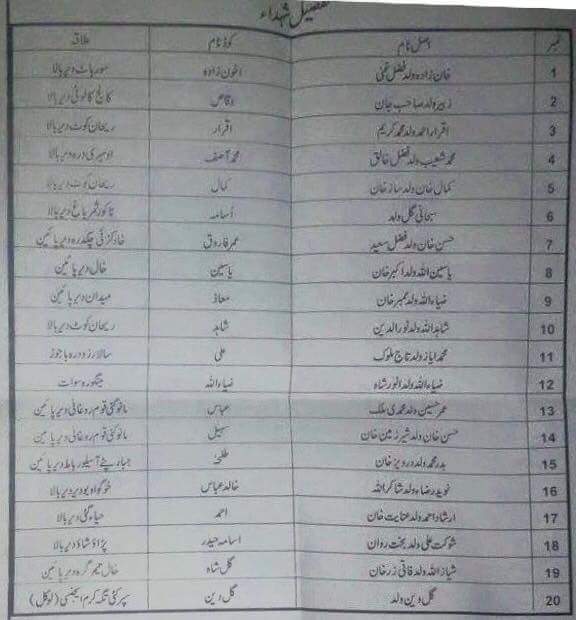 تفصیل شہداء
نمبر اصل نام کوڈ نام علاقہ
1 خان زادہ ولد فضل غنی اخون زادہ سور باٹ دیر بالا
2 زبیر ولد صاحب جان وقاص دیر بالا
3 اقرار احمد ولد محمد کریم اقرار ریحان کوٹ دیر بالا
4 محمد شعیب ولد فضل خالق محمد آصف اوسیری درہ دیر بالا
5 کمال خان ولد ساز خان کمال ریحان کوٹ دیر بالا
6 سبحانی گل ولد اُسامہ دیر بالا
7 حسن خان ولد فضل سعید عمر فاروق چکدرہ دیر پائین
8 یاسین اللہ ولد اکبر خان یاسین خال دیر پائین
9 ضیاء اللہ ولد عمبر خان معاذ میدان دیر پائین
10 شاہد اللہ ولد نور الدین شاہد ریحان کوٹ دیر بالا
11 محمد ایاز ولد تاج ملوک علی سالارزو درہ باجوڑ
12 ضیاء اللہ ولد انور شاہ ضیاء اللہ مینگورہ سوات
13 عمر حسین ولد محمدی ملک عباس قوم روغانی دیر پائین
14 حسن خان ولد شیر زمین خان سہیل قوم روغانی دیر پائین
15 بدر محمد ولد درویز خان طلحٰہ دیر پائین
16 نوید رضاء ولد شاکر اللہ خالد عباس دیر بالا
17 ارشاد احمد ولد عنایت خان احمد حیاء گئی دیر بالا
18 شوکت علی ولد بخت روان اسامہ حیدر دیر بالا
19 شیاز اللہ ولد فانی زر خان گل شاہ خال تیمر گرہ دیر پائین
20 گل دین ولد گل دین کرم ایجنسی (لوکل)